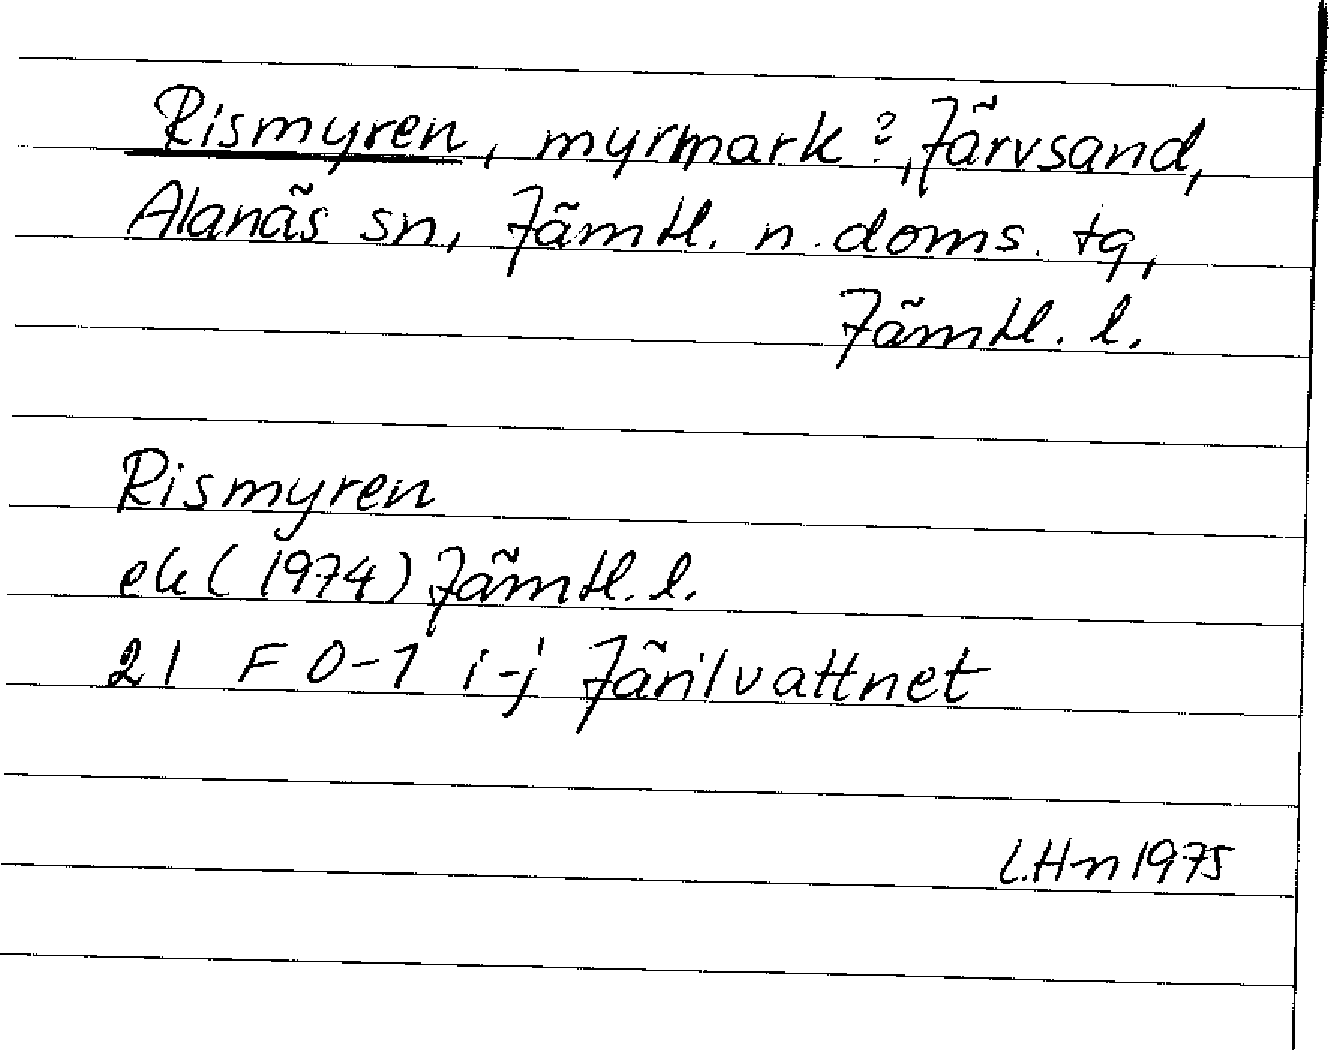 Rismyren, myrmark?, Järvsand,
Alanäs sn, Jämtl. n. doms. tg,
Jämtl. l.
Rismyren
ek (1974) Jämtl. l.
21 F 0-1 i-j Järilvattnet
L.Hn 1975